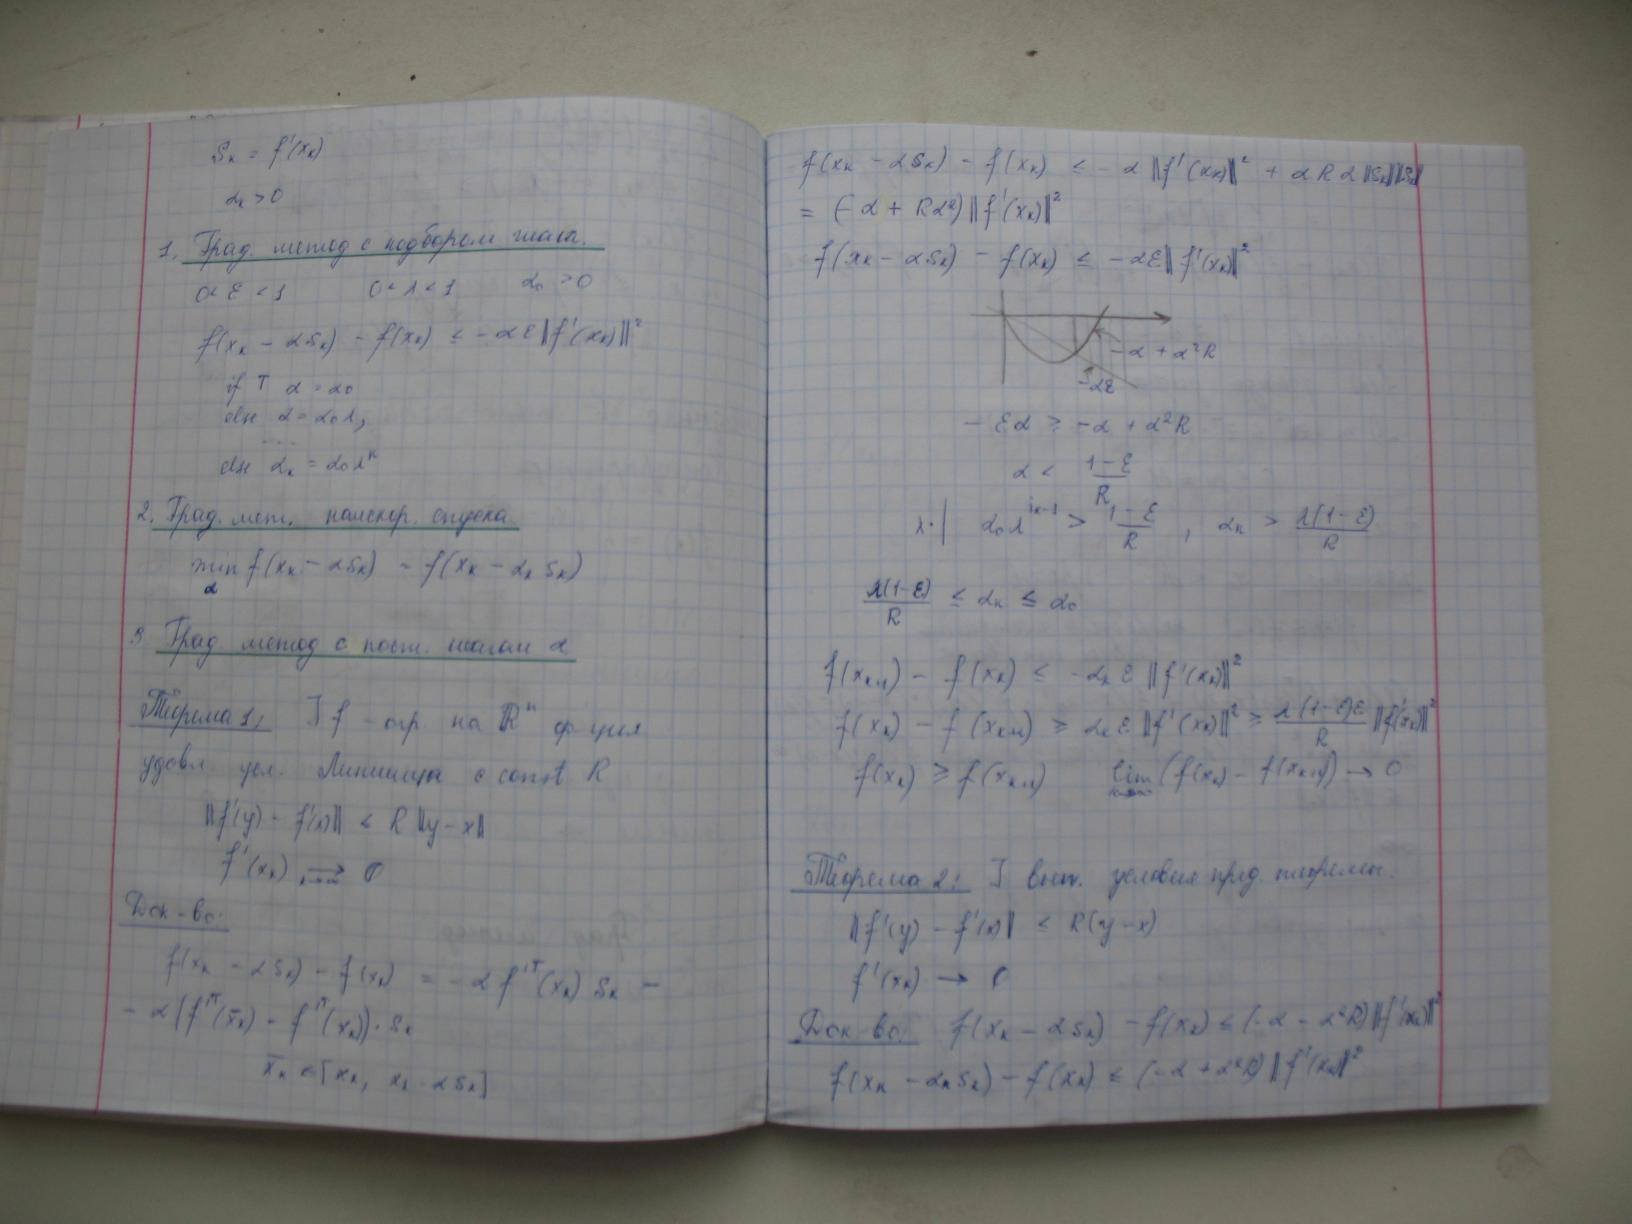 Sₖ = f'(xₖ)
αₖ > 0
1. Град. метод с подбором шага.
0 < ε < 1   0 < λ < 1   α₀ > 0
f(xₖ - αsₖ) - f(xₖ) ≤ -αε‖f'(xₖ)‖²
if T α = α₀
α = α₀λ,
...
αₖ = α₀λᵏ
2. Град. мет. наискор. спуска
min f(xₖ - αsₖ) - f(xₖ - αₖsₖ)
α
3 Град. метод с пост. шагом α
Теорема 1: ] f - огр. на ℝⁿ
удовл. усл. Липшица с const R
‖f'(y) - f'(x)‖ ≤ R‖y - x‖
f'(xₖ) → 0
k→∞
Док-во:
f(xₖ - αsₖ) - f(xₖ) = -αf'ᵀ(xₖ)sₖ -
- α(f'ᵀ(x̄ₖ) - f'ᵀ(xₖ))·sₖ
x̄ₖ ∈ [xₖ, xₖ - αsₖ]
f(xₖ - αsₖ) - f(xₖ) ≤ -α‖f'(xₖ)‖² + αRα‖sₖ‖‖sₖ‖
= (-α + Rα²)‖f'(xₖ)‖²
f(xₖ - αsₖ) - f(xₖ) ≤ -αε‖f'(xₖ)‖²
-α + α²R
-αε
-εα ≥ -α + α²R
α < (1-ε)/R
λ·| α₀λ^(iₖ-1) > (1-ε)/R , αₖ > λ(1-ε)/R
λ(1-ε)/R ≤ αₖ ≤ α₀
f(xₖ₊₁) - f(xₖ) ≤ -αₖε‖f'(xₖ)‖²
f(xₖ) - f(xₖ₊₁) ≥ αₖε‖f'(xₖ)‖² ≥ λ(1-ε)ε/R ‖f'(xₖ)‖²
f(xₖ) ≥ f(xₖ₊₁)   lim (f(xₖ) - f(xₖ₊₁)) → 0
k→∞
Теорема 2: ] вып. условия пред. теоремы.
‖f'(y) - f'(x)‖ ≤ R(y - x)
f'(xₖ) → 0
Док-во: f(xₖ - αsₖ) - f(xₖ) ≤ (-α - α²R)‖f'(xₖ)‖²
f(xₖ - αₖsₖ) - f(xₖ) ≤ (-α + α²R)‖f'(xₖ)‖²